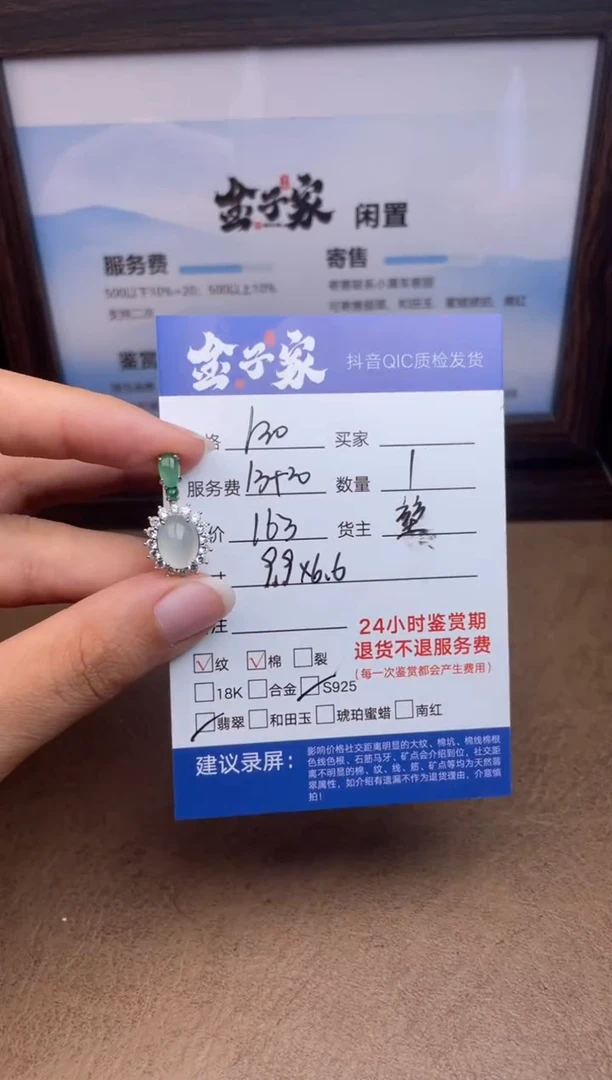 金子家 闲置
服务费 寄售
500以下10%+20; 500以上10%
支持二次
鉴赏
金子家 抖音QIC质检发货
格 130 买家
服务费 13+20 数量 1
价 163 货主
9.9×6.6
注
24小时鉴赏期
退货不退服务费
(每一次鉴赏都会产生费用)
纹 棉 裂
18K 合金 S925
翡翠 和田玉 琥珀蜜蜡 南红
建议录屏:
影响价格社交距离明显的大纹、棉坑、棉线棉根
色线色根、石筋马牙、矿点会介绍到位,社交距
离不明显的棉、纹、线、筋、矿点等均为天然翡
翠属性,如介绍有遗漏不作为退货理由,介意慎
拍!